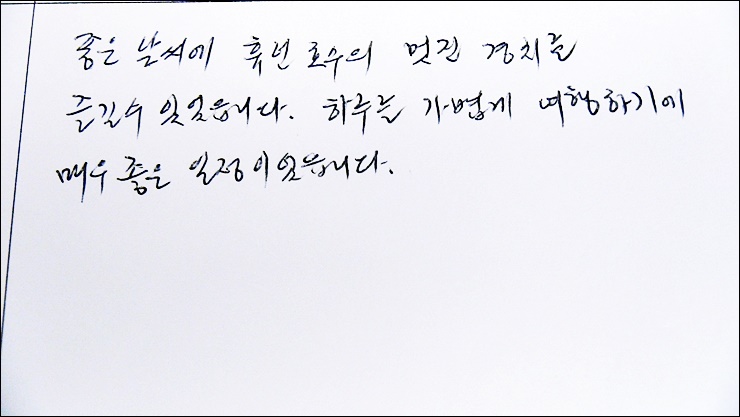 좋은 날씨에 휴런 호수의 멋진 경치를
즐길수 있었습니다. 하루를 가볍게 여행하기에
매우 좋은 일정이었습니다.